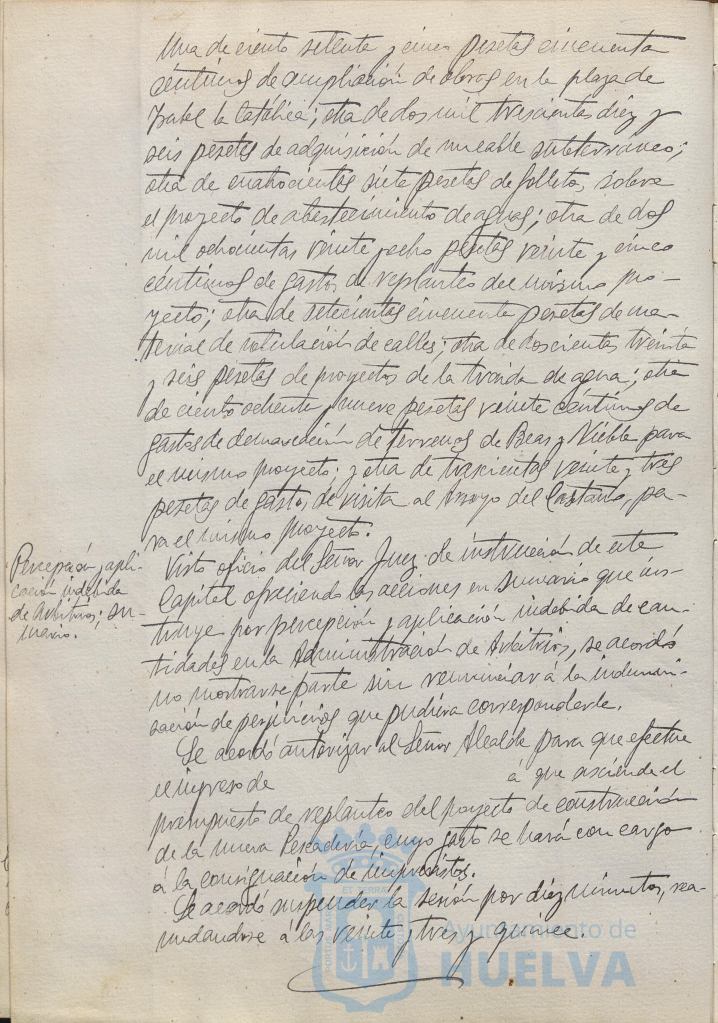 Una de ciento setenta y cinco pesetas cincuenta
céntimos de ampliación de obras en la plaza de
Isabel la Católica; otra de dos mil trescientas diez y
seis pesetas de adquisición de un cable subterráneo;
otra de cuatrocientas siete pesetas de folletos, sobre
el proyecto de abastecimiento de aguas; otra de dos
mil ochocientas veinte y ocho pesetas veinte y cinco
céntimos de gastos de replanteo del mismo pro-
yecto; otra de setecientas cincuenta pesetas de ma-
terial de rotulación de calles; otra de doscientas treinta
y seis pesetas de proyectos de la traida de agua; otra
de ciento ochenta y nueve pesetas veinte céntimos de
gastos de demarcación de terrenos de Beas y Niebla para
el mismo proyecto; y otra de trescientas veinte y tres
pesetas de gastos, de visita al Arroyo del Castaño, pa-
ra el mismo proyecto.
Percepción y apli-
cación indebida
de Arbitrios; su-
mario.
Visto oficio del Señor Juez de instrucción de esta
Capital ofreciendo las acciones en sumario que ins-
truye por percepción y aplicación indebida de can-
tidades en la Administración de Arbitrios, se acordó
no mostrarse parte sin renunciar á la indemni-
zación de perjuicios que pudiera corresponderle.
Se acordó autorizar al Señor Alcalde para que efectue
el ingreso de á que asciende el
presupuesto de replanteo del proyecto de construcción
de la nueva Pescadería, cuyo gasto se hará con cargo
á la consignación de imprevistos.
Se acordó suspender la sesión por diez minutos, rea-
nudandose á las veinte y tres y quince.
Ayuntamiento de
HUELVA